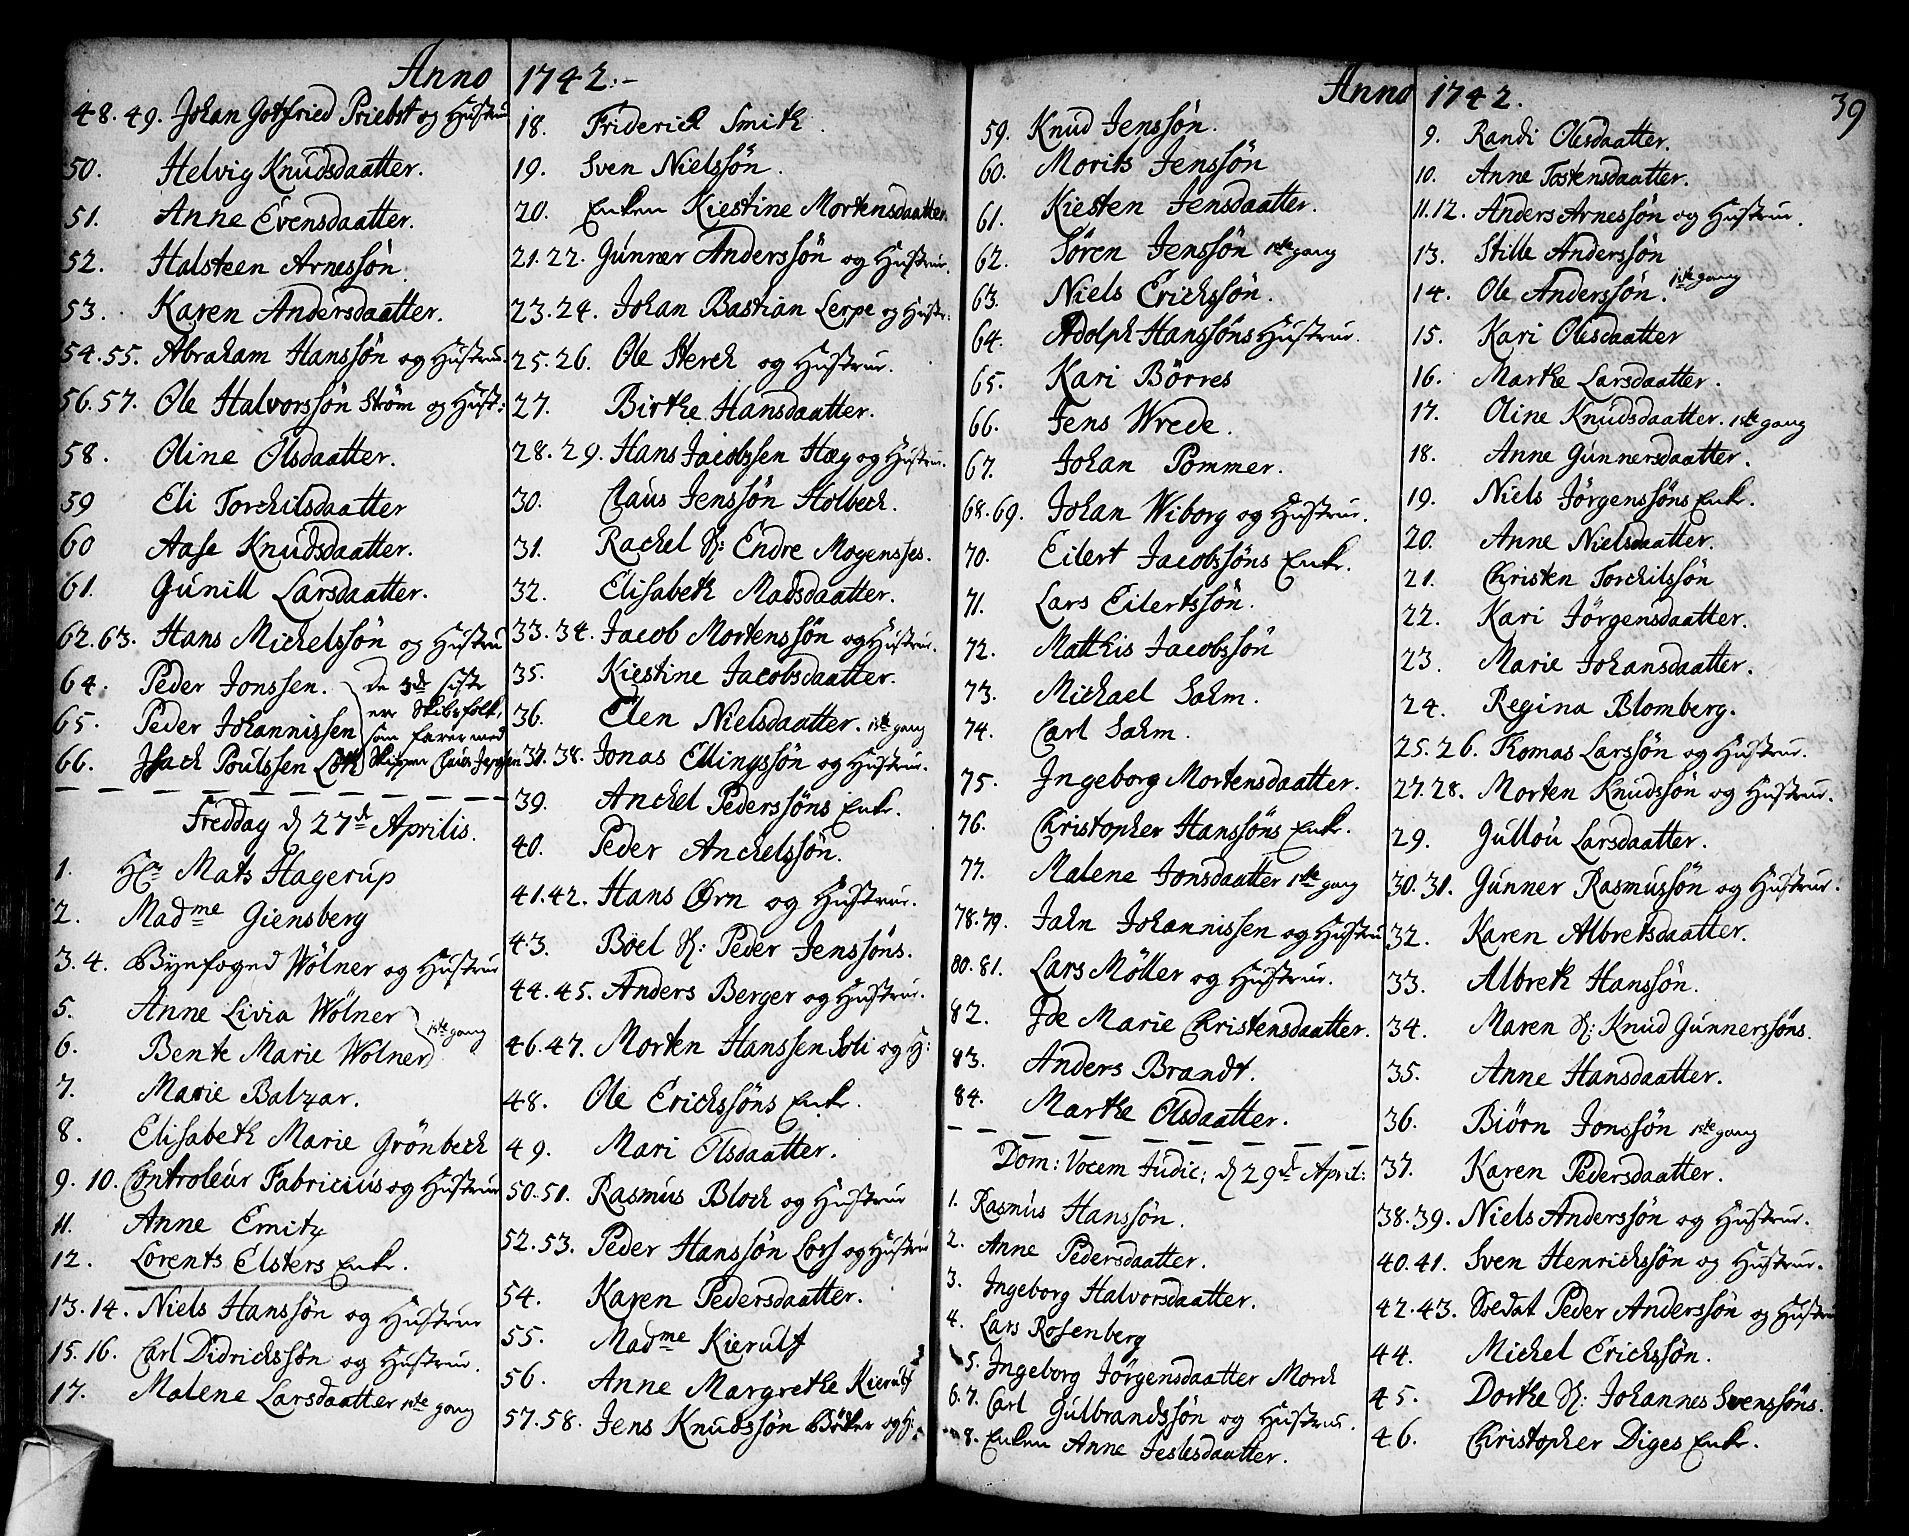 Anno 1742.
48. 49. Johan Gotfried Priebst og Hustru
50. Helvig Knudsdaatter.
51. Anne Evensdaatter.
52. Halsteen Arnessøn.
53. Karen Andersdaatter.
54. 55. Abraham Hanssøn og Hustrue
56. 57. Ole Halvorssøn Strøm og Hust:
58. Oline Olsdaatter.
59 Eli Torchilsdaatter
60 Aase Knudsdaatter.
61. Gunill Larsdaatter.
62. 63. Hans Michelssøn og Hustru
64. Peder Jonssen. De 3de siste
65. Peder Johannissen ere Skibsfolk,
som farer med
66. Isach Poulssen Skipper
Freddag d 27de Aprilis.
1. Hr Mats Hagerup
2. Madme Giensberg
3. 4. Byefoged Wölner og Hustrue
5. Anne Livia Wölner
1ste gang
6. Bente Marie Wölner
7. Marie Balzar.
8. Elisabeth Marie Grönbech
9. 10. Controleur Fabricius og Hustrue
11. Anne Emitz
12. Lorents Elsters Enke.
13. 14. Niels Hanssøn og Hustrue
15. 16. Carl Didrichssøn og Hustrue.
17. Malene Larsdaatter 1ste gang
18. Friderich Smith.
19. Sven Nielssøn.
20. Enken Kiestine Mortensdaatter
21. 22. Gunner Anderssøn og Hustrue.
23. 24. Johan Bastian Lerpe og Hustr:
25. 26. Ole Sterch og Hustrue.
27. Birthe Hansdaatter.
28. 29. Hans Jacobssen Hæg og Hustrue.
30. Claus Jenssøn Holbech.
31. Rachel S: Endre Mogenses.
32. Elisabeth Madsdaatter.
33. 34. Jacob Mortenssøn og Hustrue.
35. Kiestine Jacobsdaatter.
36. Elen Nielsdaatter. 1ste gang
37. 38. Jonas Ellingssøn og Hustrue.
39. Anchel Pederssøns Enke.
40. Peder Anchelssøn.
41. 42. Hans Ørn og Hustrue.
43. Boel S: Peder Jenssøns.
44. 45. Anders Berger og Hustrue.
46. 47. Morten Hanssen Soli og H:
48. Ole Erichssøns Enke.
49. Mari Olsdaatter.
50. 51. Rasmus Bloch og Hustrue
52. 53. Peder Hanssøn Lors og Hustrue
54. Karen Pedersdaatter.
55. Madme Kierulf
56. Anne Margrethe Kierulf
57. 58. Jens Knudssøn Bödker og H:
Anno 1742.
39
59. Knud Jenssøn.
60. Morits Jenssøn
61. Kiesten Jensdaatter.
62. Søren Jenssøn 1ste gang
63. Niels Erichssøn.
64. Adolph Hanssøns Hustrue.
65. Kari Börres
66. Jens Wrede.
67. Johan Pommer.
68. 69. Johan Wiborg og Hustrue.
70. Eilert Jacobssøns Enke.
71. Lars Eilertssøn.
72. Matthis Jacobssøn
73. Michael Sahm.
74. Carl Sahm.
75. Ingeborg Mortensdaatter.
76. Christopher Hanssøns Enke.
77. Malene Jonsdaatter 1ste gang
78. 79. Jahn Johannissen og Hustru
80. 81. Lars Möller og Hustrue.
82. Ide Marie Christensdaatter.
83. Anders Brandt.
84. Marthe Olsdaatter.
Dom: Vocem Judic: d 29de April:
1. Rasmus Hanssøn.
2. Anne Pedersdaatter.
3. Ingeborg Halvorsdaatter.
4. Lars Rosenberg
5. Ingeborg Jørgensdaatter Morch
6. 7. Carl Gulbrandssøn og Hustrue.
8. Enken Anne Jeslesdaatter.
9. Randi Olsdaatter.
10. Anne Tostensdaatter.
11. 12. Anders Arnessøn og Hustrue.
13. Stille Anderssøn
14. Ole Anderssøn. 1ste gang
15. Kari Olsdaatter
16. Marthe Larsdaatter.
17. Oline Knudsdaatter. 1ste gang
18. Anne Gunnersdaatter.
19. Niels Jörgenssøns Enke.
20. Anne Nielsdaatter.
21. Christen Torchilssøn
22. Kari Jörgensdaatter.
23. Marie Johansdaatter.
24. Regina Blomberg.
25. 26. Thomas Larssøn og Hustrue.
27. 28. Morten Knudssøn og Hustrue.
29. Gullou Larsdaatter.
30. 31. Gunner Rasmussøn og Hustrue.
32. Karen Albretsdaatter.
33. Albreth Hanssøn.
34. Maren S: Knud Gunnerssøns.
35. Anne Hansdaatter.
36. Biørn Jonssøn 1ste gang
37. Karen Pedersdaatter.
38. 39. Niels Anderssøn og Hustrue.
40. 41. Sven Henrichssøn og Hustrue.
42. 43. Soldat Peder Anderssøn og Hustrue
44. Michel Erichssøn.
45. Dorthe S: Johannes Svenssøns.
46. Christopher Diges Enke.